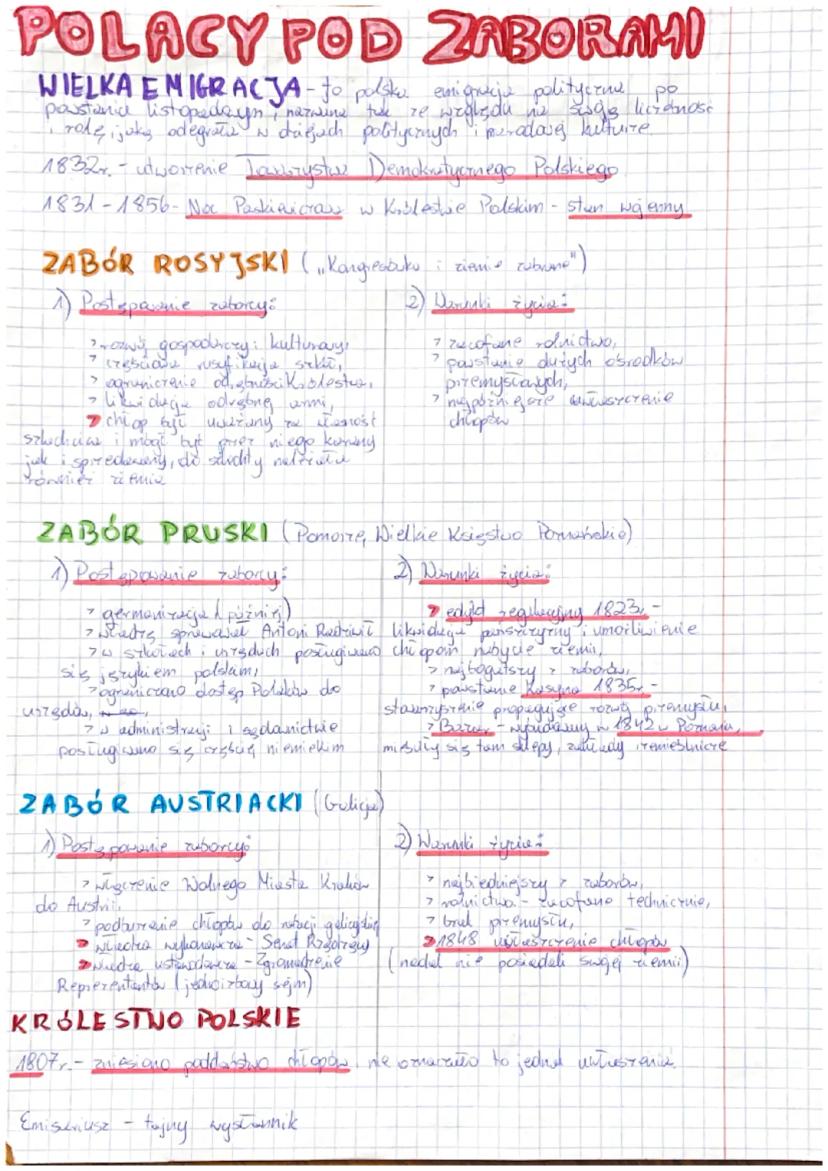 POLACY POD ZABORAMI
WIELKA EMIGRACJA - to polska emigracja polityczna po
powstaniu listopadowym, nazwana tak ze względu na swoją liczebność
i rolę, jaką odegrała w dziejach politycznych i narodowej kulturze
1832r. - utworzenie Towarzystwa Demokratycznego Polskiego
1831 - 1856 - Noc Paskiewiczowska w Królestwie Polskim - stan wojenny
ZABÓR ROSYJSKI („Kongresówka i ziemie zabrane")
1) Postępowanie zaborcy:
> rozwój gospodarczy i kulturowy,
> częściowa rusyfikacja szkół,
> ograniczenie odrębności Królestwa,
> likwidacja odrębnej armii,
> chłop był uważany za własność
szlachcica i mógł być przez niego kupiony
jak i sprzedawany, do szlachty należała
również ziemia
2) Warunki życia:
> zacofane rolnictwo,
> powstanie dużych ośrodków
przemysłowych,
> najpóźniejsze uwłaszczenie
chłopów
ZABÓR PRUSKI (Pomorze, Wielkie Księstwo Poznańskie)
1) Postępowanie zaborcy:
> germanizacja (później)
> władzę sprawował Antoni Radziwił
> w szkołach i urzędach posługiwano
się językiem polskim,
> ograniczano dostęp Polaków do
urzędów,
> w administracji i sądownictwie
posługiwano się częścią niemiekim
2) Warunki życia:
> edykt regulacyjny 1823r. -
likwidacja pańszczyzny i umożliwienie
chłopom nabycie ziemi,
> najbogatszy z zaborów,
> powstanie Kasyna 1835r. -
stowarzyszenie propagujące rozwój przemysłu,
> Bazar - wybudowany w 1842 w Poznaniu,
mieściły się tam sklepy, zakłady rzemieślnicze
ZABÓR AUSTRIACKI (Galicja)
1) Postępowanie zaborcy:
> włączenie Wolnego Miasta Kraków
do Austrii,
> podburzanie chłopów do rabacji galicyjskiej
> władza wykonawcza - Senat Rządzący
> władza ustawodawcza - Zgromadzenie
Reprezentantów (jednoizbowy sejm)
2) Warunki życia:
> najbiedniejszy z zaborów,
> rolnictwo - zacofane technicznie,
> brak przemysłu,
> 1848 uwłaszczenie chłopów
(nadal nie posiadali swojej ziemii)
KRÓLESTWO POLSKIE
1807r. - zniesiono poddaństwo chłopów, nie oznaczało to jednak uwłaszczenia.
Emisariusz - tajny wysłannik